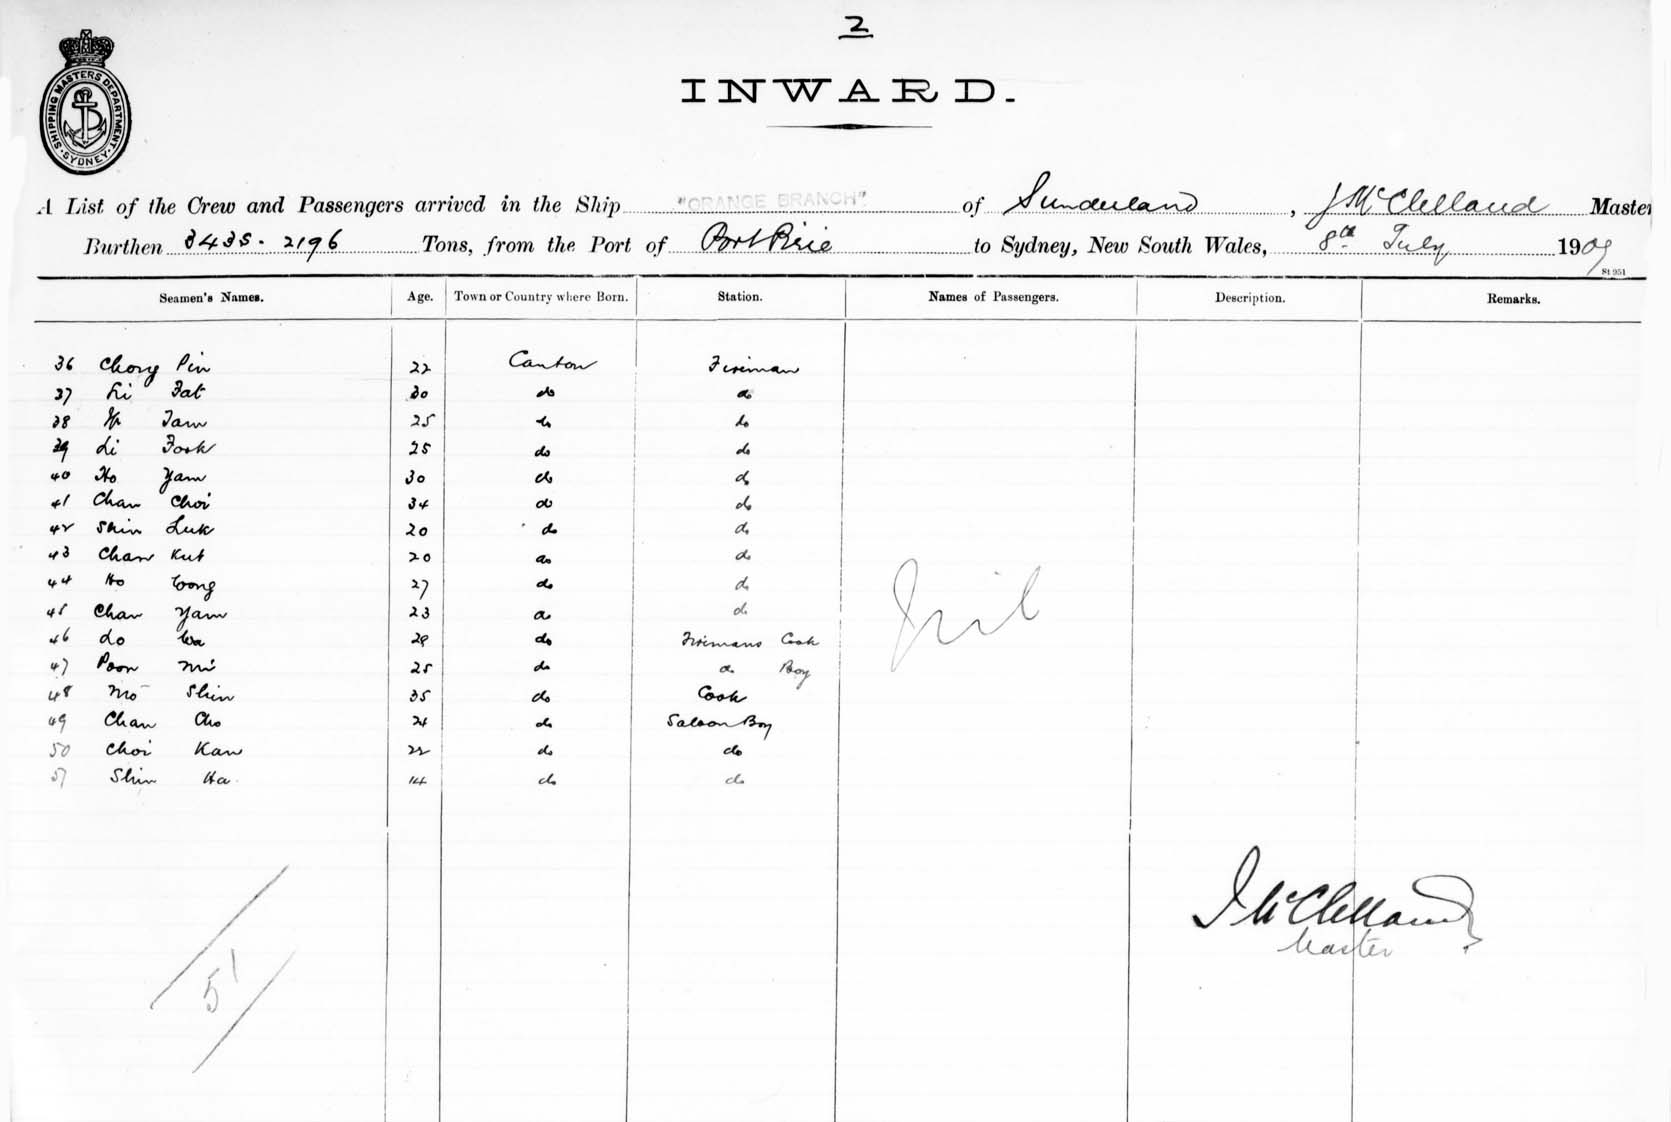 2
INWARD.
SHIPPING MASTERS DEPARTMENT · SYDNEY ·
A List of the Crew and Passengers arrived in the Ship "ORANGE BRANCH" of Sunderland, J McClelland Master
Burthen 3435 - 2196 Tons, from the Port of Port Pirie to Sydney, New South Wales, 8th July 1909
St 951
Seamen's Names. Age. Town or Country where Born. Station. Names of Passengers. Description. Remarks.
36 Chong Pin 22 Canton Fireman
37 Li Fat 30 do do
38 Tam 25 do do
39 Li Fook 25 do do
40 Ho Yam 30 do do
41 Chan Choi 34 do do
42 Shin Luk 20 do do
43 Chan Kut 20 do do
44 Ho Wong 27 do do
45 Chan Yam 23 do do
46 Lo Wa 28 do Firemans Cook
47 Poon Mi 25 do do Boy
48 Mo Shin 35 do Cook
49 Chan Cho 21 do Saloon Boy
50 Choi Kan 22 do do
51 Shin Ha 14 do do
Nil
J McClelland
Master
51